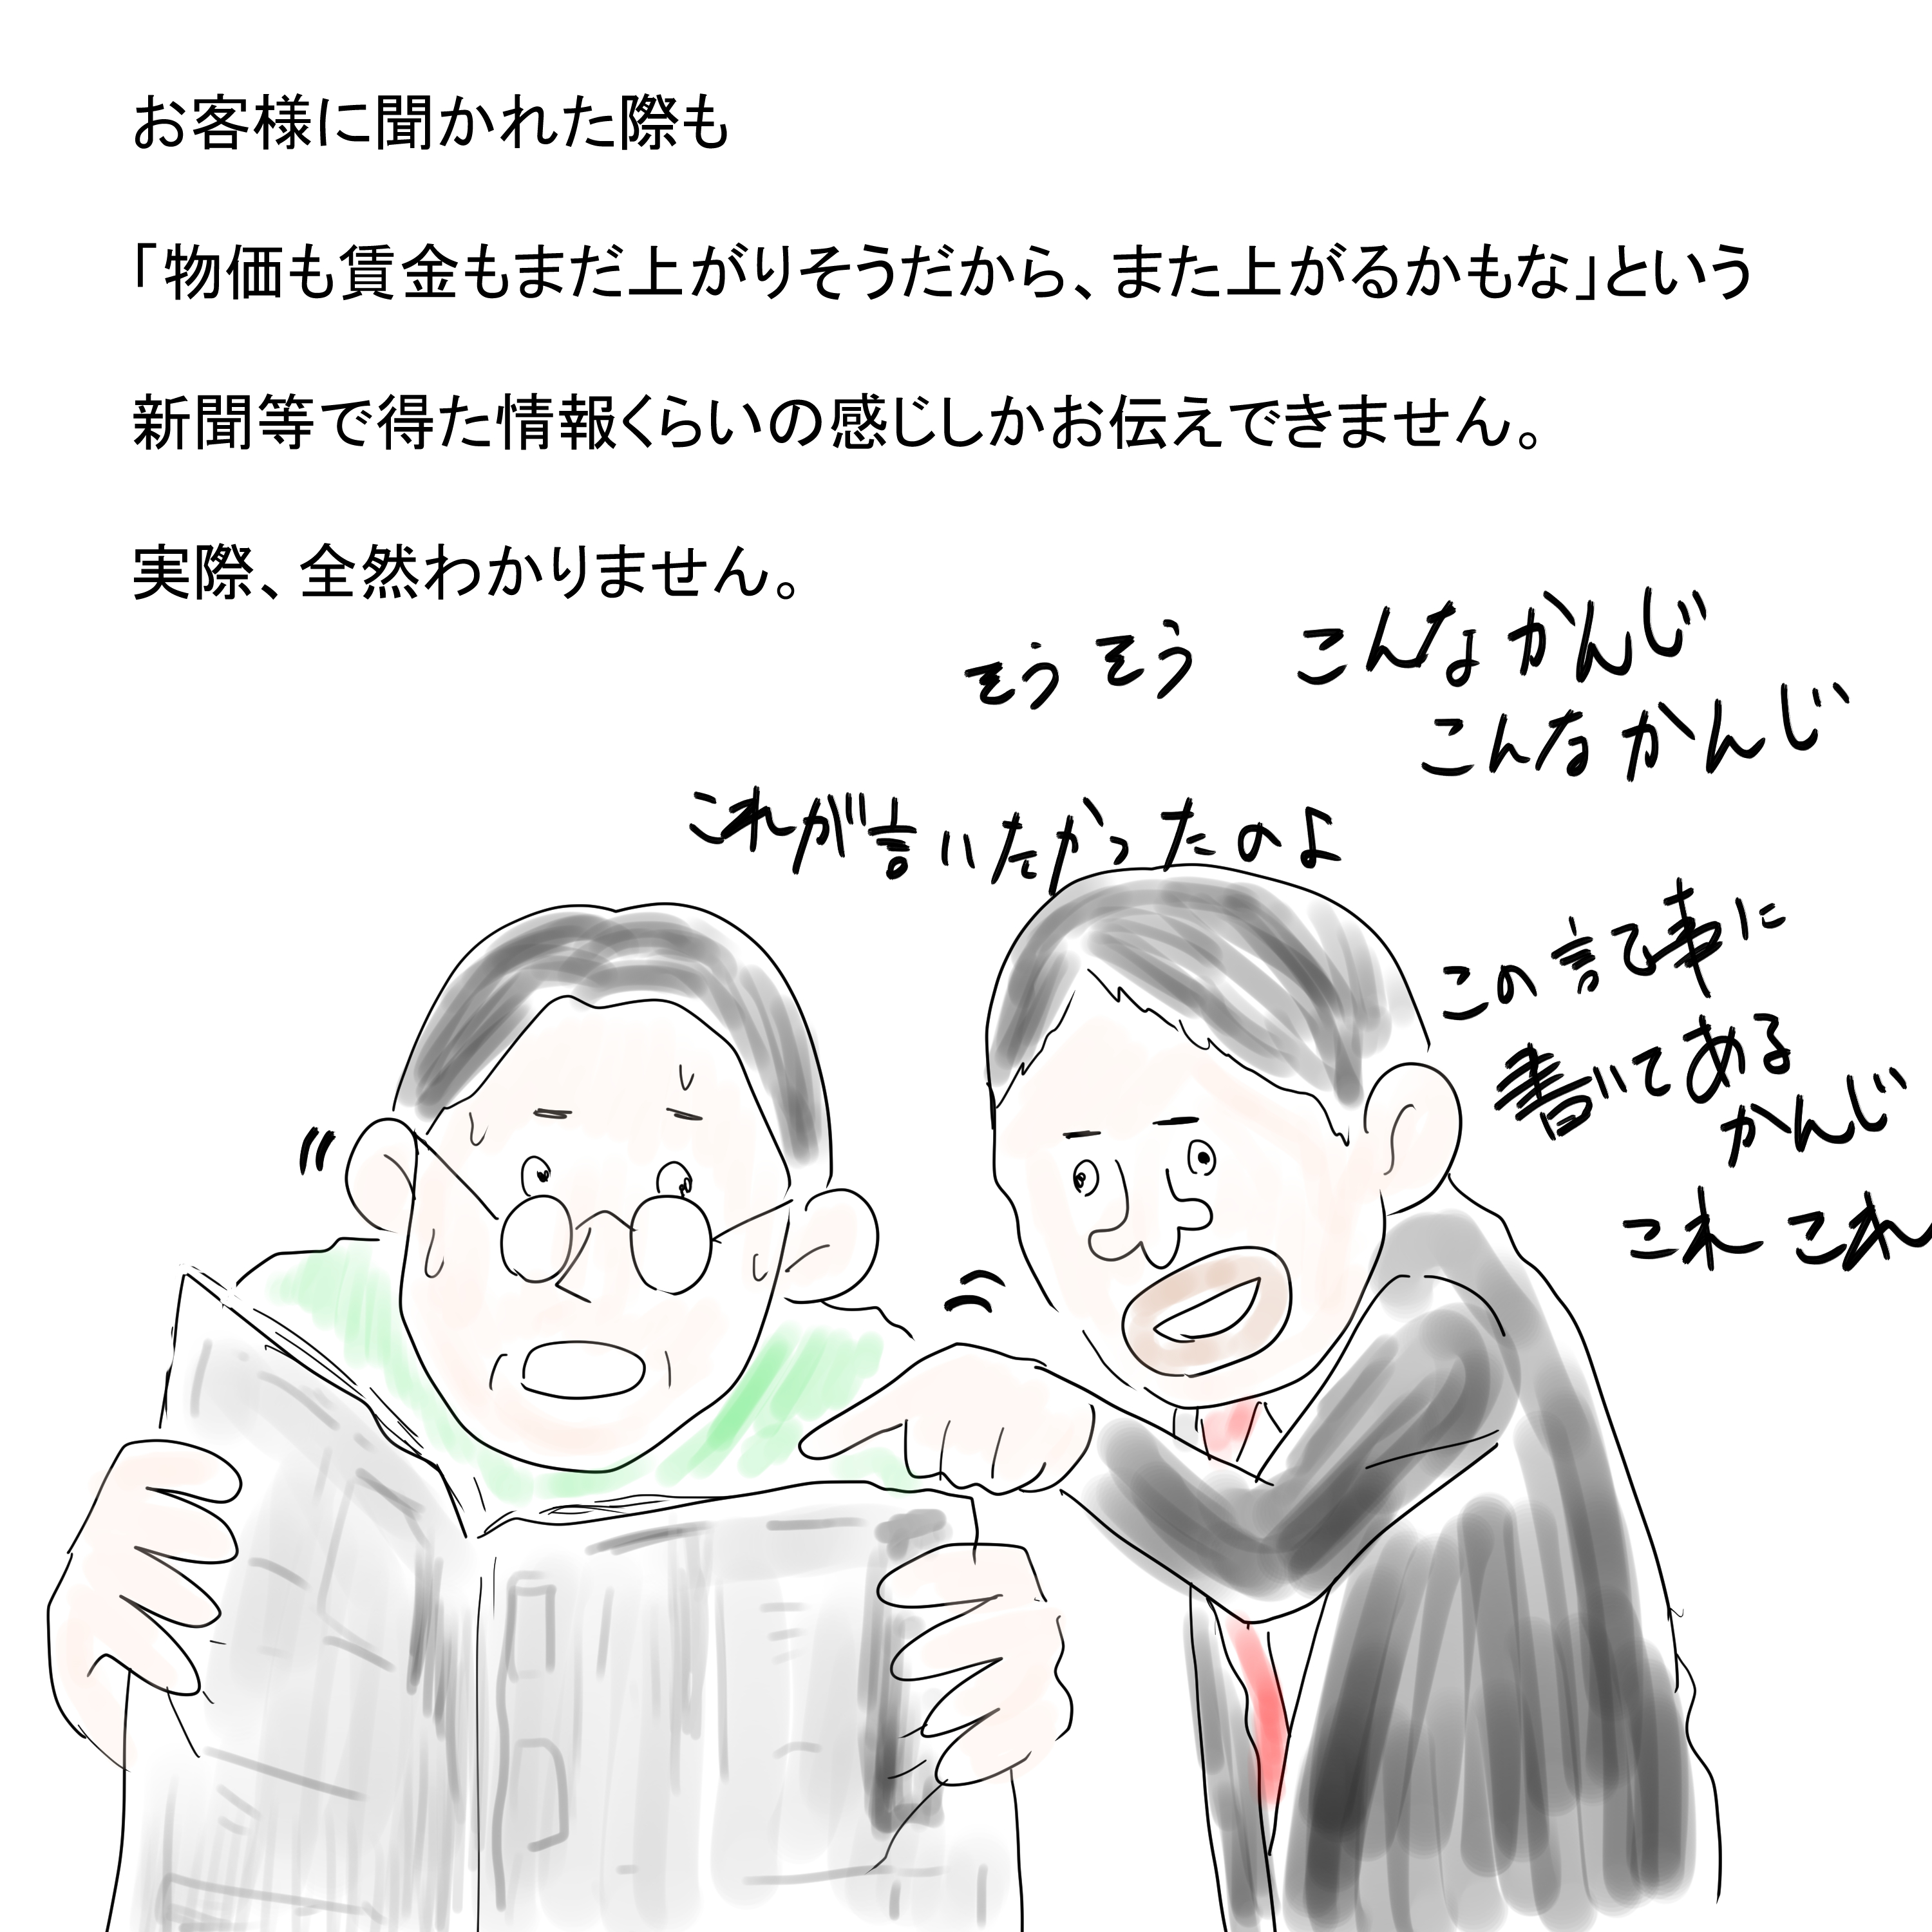 お客様に聞かれた際も
「物価も賃金もまだ上がりそうだから、また上がるかもな」という
新聞等で得た情報くらいの感じしかお伝えできません。
実際、全然わかりません。
そうそう　こんなかんじ
こんなかんじ
これが言いたかったのよ
この記事に
書いてある
かんじ
これ これ